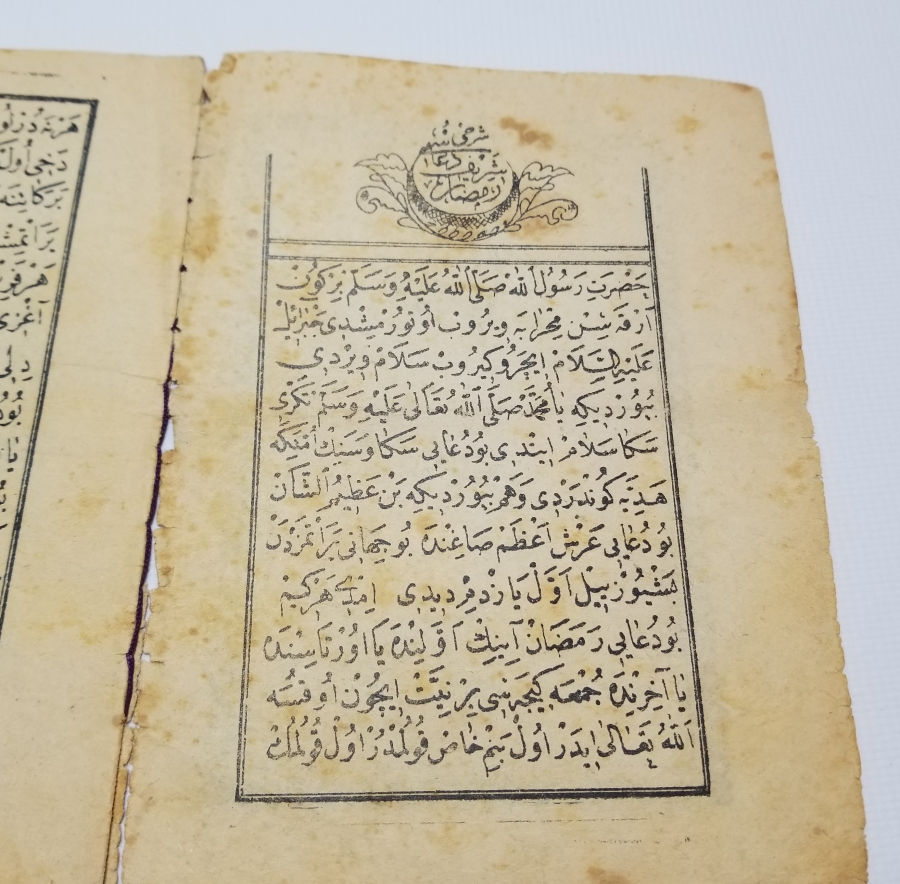 شرحی نسه
شریف دعا
رمضان
حَضْرَتِ رَسُولُ اللهْ صَلَّی اللهُ عَلَیْهِ وَسَلَّمْ بِرْ کُونْ
آرْقَه سِنْ مِحْرَابَه وِیرُوبْ اُوتُورْمِشْدِی جَبْرَائِیلْ
عَلَیْهِ السَّلَامْ اِیچَرُو کِیرُوبْ سَلَامْ وِیرْدِی
بُیُورْدِیکِه یَا مُحَمَّدْ صَلَّی اللهُ تَعَالٰی عَلَیْهِ وَسَلَّمْ تَکْرِی
سَکَا سَلَامْ اِیتْدِی بُو دُعَایِی سَکَا وَسَنِكْ اُمَّتِکَه
هَدِیَّه کُونْدَرْدِی وَهَمْ بُیُورْدِیکِه بَنْ عَظِیمُ الشَّانْ
بُو دُعَایِی عَرْشِ اَعْظَمْ صَاغِنْدَه بُو جِهَانِی یَرَاتْمَزْدَنْ
بَشْیُوزْ بِیلْ اَوَّلْ یَازْدِمْ دِیدِی اِمْدِی هَرْکِیمْ
بُو دُعَایِی رَمَضَانْ آیِنِكْ اَوَّلِنْدَه یَا اُورْتَاسِنْدَه
یَا آخِرِنْدَه جُمْعَه کِیجَه سِی بِرْ نِیَّتْ اِیچُونْ اُوقُسَه
اَللهُ تَعَالٰی اِیدَرْ اُولْ بَنِمْ خَاصْ قُولُمْدُرْ اُولْ قُولُمُكْ
هَرْ نَه
دَخِی اُولْ